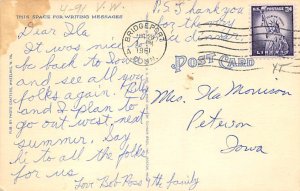 4-91 V.W.
P.S. I thank you
for the
nice dinner
THIS SPACE FOR WRITING MESSAGES
Dear Ila
It was nice
be back to Iowa
and see all you
folks again.
and I plan to
go out west, next
summer. Say
hi to all the folks
for us
Love Bob Ross & the family
BRIDGEPORT
CONN.
U.S. POSTAGE
3¢
LIBERTY
POST CARD
Mrs. Ila Morrison
Peterson
Iowa